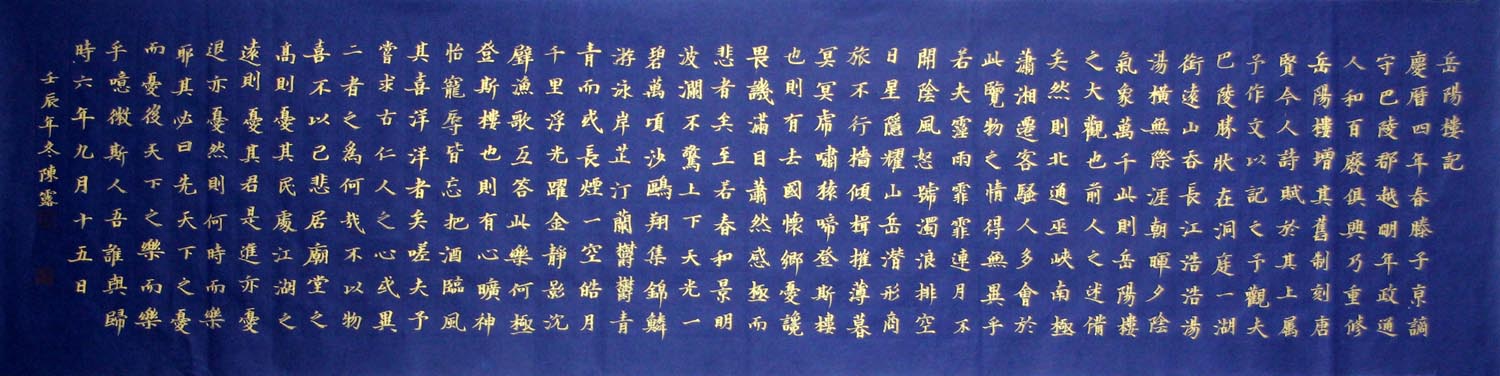 岳陽樓記
慶曆四年春滕子京謫
守巴陵郡越明年政通
人和百廢俱興乃重修
岳陽樓增其舊制刻唐
賢今人詩賦於其上属
予作文以記之予觀夫
巴陵勝狀在洞庭一湖
銜遠山吞長江浩浩湯
湯橫無際涯朝暉夕陰
氣象萬千此則岳陽樓
之大觀也前人之述備
矣然則北通巫峽南極
瀟湘遷客騷人多會於
此覽物之情得無異乎
若夫霪雨霏霏連月不
開陰風怒號濁浪排空
日星隱耀山岳潛形商
旅不行檣傾楫摧薄暮
冥冥虎嘯猿啼登斯樓
也則有去國懷鄉憂讒
畏譏滿目蕭然感極而
悲者矣至若春和景明
波瀾不驚上下天光一
碧萬頃沙鷗翔集錦鱗
游泳岸芷汀蘭鬱鬱青
青而或長煙一空皓月
千里浮光躍金靜影沉
璧漁歌互答此樂何極
登斯樓也則有心曠神
怡寵辱皆忘把酒臨風
其喜洋洋者矣嗟夫予
嘗求古仁人之心或異
二者之為何哉不以物
喜不以己悲居廟堂之
高則憂其民處江湖之
遠則憂其君是進亦憂
退亦憂然則何時而樂
耶其必曰先天下之憂
而憂後天下之樂而樂
乎噫微斯人吾誰與歸
時六年九月十五日
壬辰年冬陳露